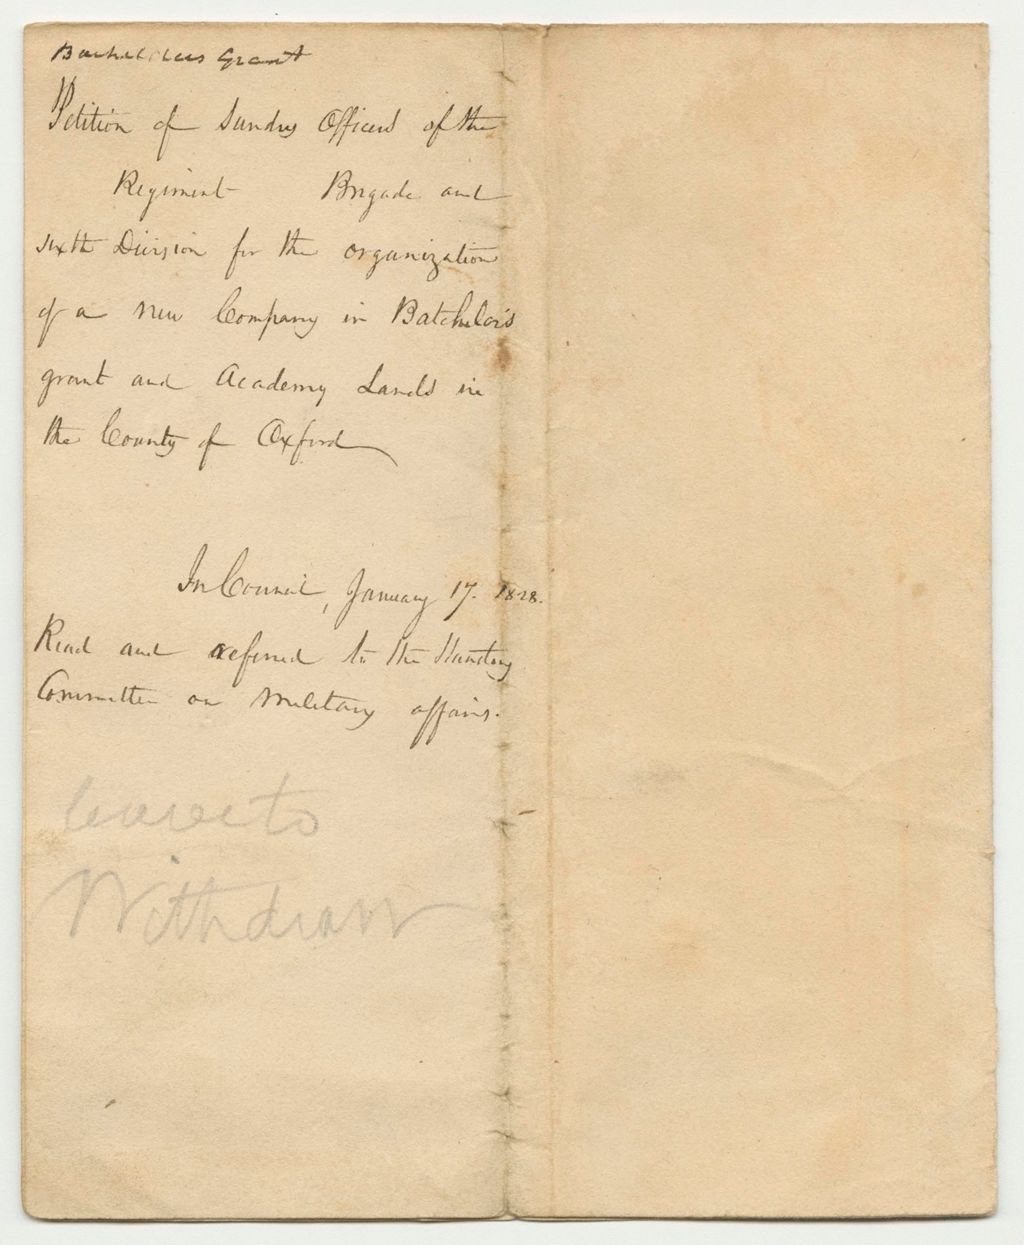 Bachelders Grant
Petition of Sundry Officers of the
Regiment Brigade and
sixth Division for the organization
of a new Company in Batchelor's
grant and Academy Lands in
the County of Oxford
In Council, January 17. 1828.
Read and referred to the Standing
Committee on Military affairs.
leave to
Withdraw